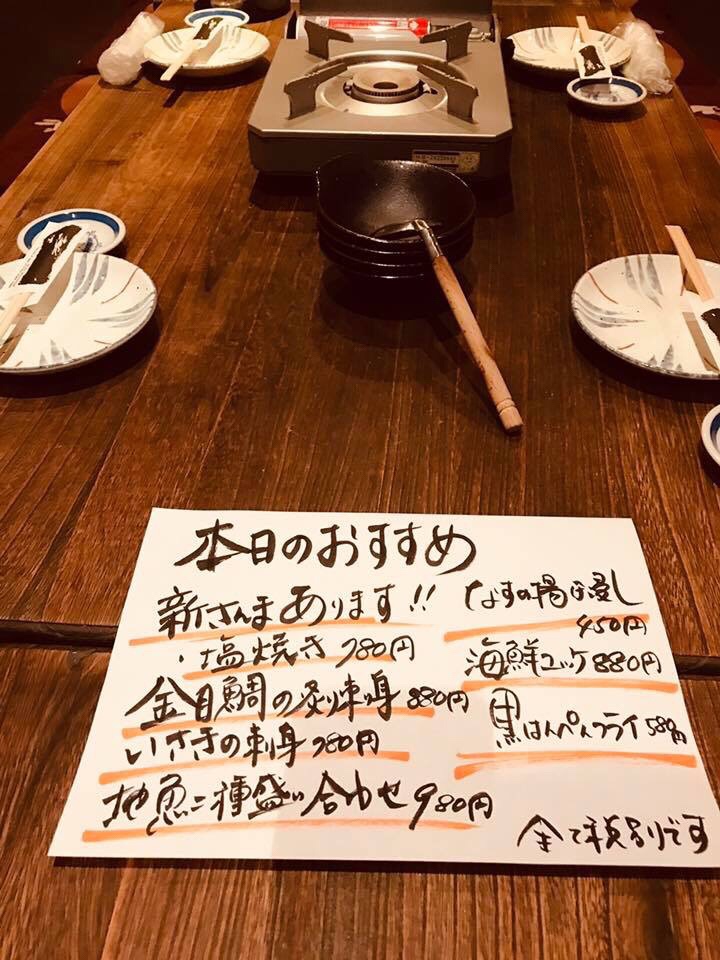 本日のおすすめ
新さんまあります!!
・塩焼き 780円
金目鯛の炙り刺身 880円
いさきの刺身 780円
地魚二種盛り合わせ 980円
なすの揚げ浸し
450円
海鮮ユッケ 880円
黒はんぺんフライ 580円
全て税別りです